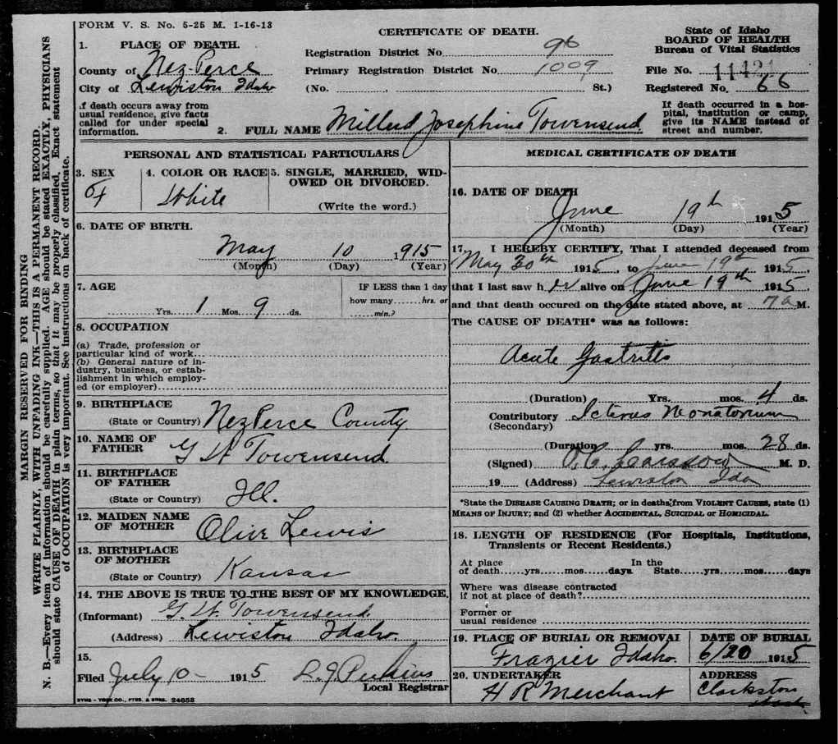 FORM V. S. No. 5-25 M. 1-16-13
CERTIFICATE OF DEATH.
State of Idaho
BOARD OF HEALTH
Bureau of Vital Statistics
1. PLACE OF DEATH.
County of Nez-Perce
City of Lewiston Idaho
Registration District No. 96
Primary Registration District No. 1009
(No. St.)
File No.
Registered No. 66
If death occurs away from usual residence, give facts called for under special information.
2. FULL NAME Josephine Townsend
If death occurred in a hospital, institution or camp, give its NAME instead of street and number.
MARGIN RESERVED FOR BINDING
WRITE PLAINLY, WITH UNFADING INK—THIS IS A PERMANENT RECORD.
N. B.—Every item of information should be carefully supplied. AGE should be stated EXACTLY, PHYSICIANS
should state CAUSE OF DEATH in plain terms, so that it may be properly classified. Exact statement
of OCCUPATION is very important. See instructions on back of certificate.
PERSONAL AND STATISTICAL PARTICULARS
3. SEX
F
4. COLOR OR RACE
White
5. SINGLE, MARRIED, WIDOWED OR DIVORCED.
(Write the word.)
6. DATE OF BIRTH.
May 10 1915
(Month) (Day) (Year)
7. AGE
Yrs. 1 Mos. 9 ds.
IF LESS than 1 day
how many hrs. or
min.?
8. OCCUPATION
(a) Trade, profession or
particular kind of work
(b) General nature of industry, business, or establishment in which employed (or employer)
9. BIRTHPLACE
(State or Country) Nez Perce County
10. NAME OF
FATHER G W Townsend
11. BIRTHPLACE
OF FATHER
(State or Country) Ill.
12. MAIDEN NAME
OF MOTHER Olive Lewis
13. BIRTHPLACE
OF MOTHER
(State or Country) Kansas
14. THE ABOVE IS TRUE TO THE BEST OF MY KNOWLEDGE,
(Informant) G. W. Townsend
(Address) Lewiston Idaho.
15.
Filed July 10- 1915 Perkins
Local Registrar
MEDICAL CERTIFICATE OF DEATH
16. DATE OF DEATH
June 19th 1915
(Month) (Day) (Year)
17. I HEREBY CERTIFY, That I attended deceased from
May 30th 1915, to June 19th 1915
that I last saw her alive on June 19th 1915
and that death occured on the date stated above, at 7a M.
The CAUSE OF DEATH* was as follows:
Acute Gastritis
(Duration) Yrs. mos. 4 ds.
Contributory Icterus Neonatorum
(Secondary)
(Duration) yrs. mos. 28 ds.
(Signed) M. D.
19 (Address) Lewiston Ida
*State the DISEASE CAUSING DEATH; or in deaths from VIOLENT CAUSES, state (1)
MEANS OF INJURY; and (2) whether ACCIDENTAL, SUICIDAL or HOMICIDAL.
18. LENGTH OF RESIDENCE (For Hospitals, Institutions,
Transients or Recent Residents.)
At place
of death yrs. mos. days
In the
State yrs. mos. days
Where was disease contracted
if not at place of death?
Former or
usual residence
19. PLACE OF BURIAL OR REMOVAL
Frazier Idaho.
DATE OF BURIAL
6/20 1915
20. UNDERTAKER
H R Merchant
ADDRESS
Clarkston